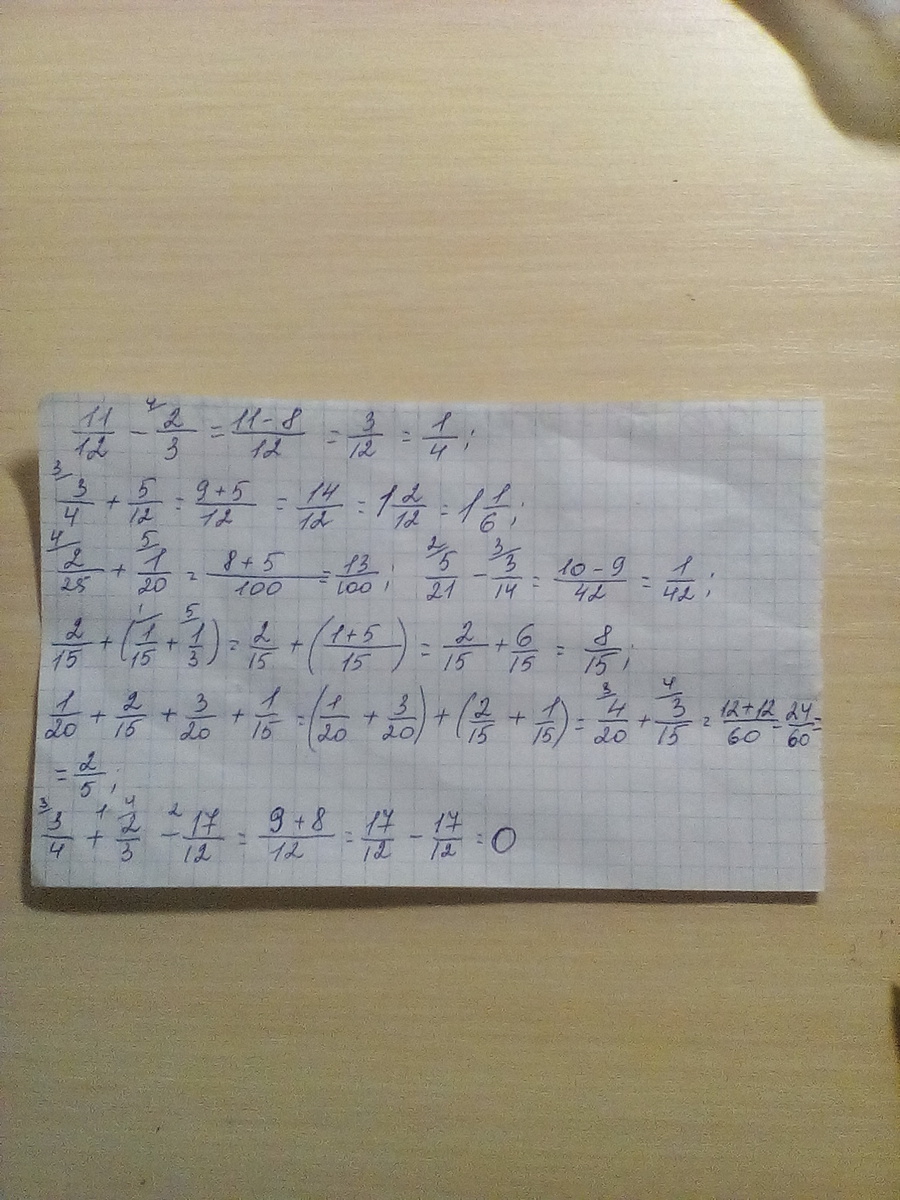 11/12 - ⁴⁄2/3 = (11-8)/12 = 3/12 = 1/4;
³⁄3/4 + 5/12 = (9+5)/12 = 14/12 = 1 2/12 = 1 1/6;
⁴⁄2/25 + ⁵⁄1/20 = (8+5)/100 = 13/100; ²⁄5/21 - ³⁄3/14 = (10-9)/42 = 1/42;
2/15 + (¹⁄1/15 + ⁵⁄1/3) = 2/15 + ((1+5)/15) = 2/15 + 6/15 = 8/15;
1/20 + 2/15 + 3/20 + 1/15 = (1/20 + 3/20) + (2/15 + 1/15) = ³⁄4/20 + ⁴⁄3/15 = (12+12)/60 = 24/60 =
= 2/5;
³⁄3/4 +¹ ⁴⁄2/3 -² 17/12 = (9+8)/12 = 17/12 - 17/12 = 0